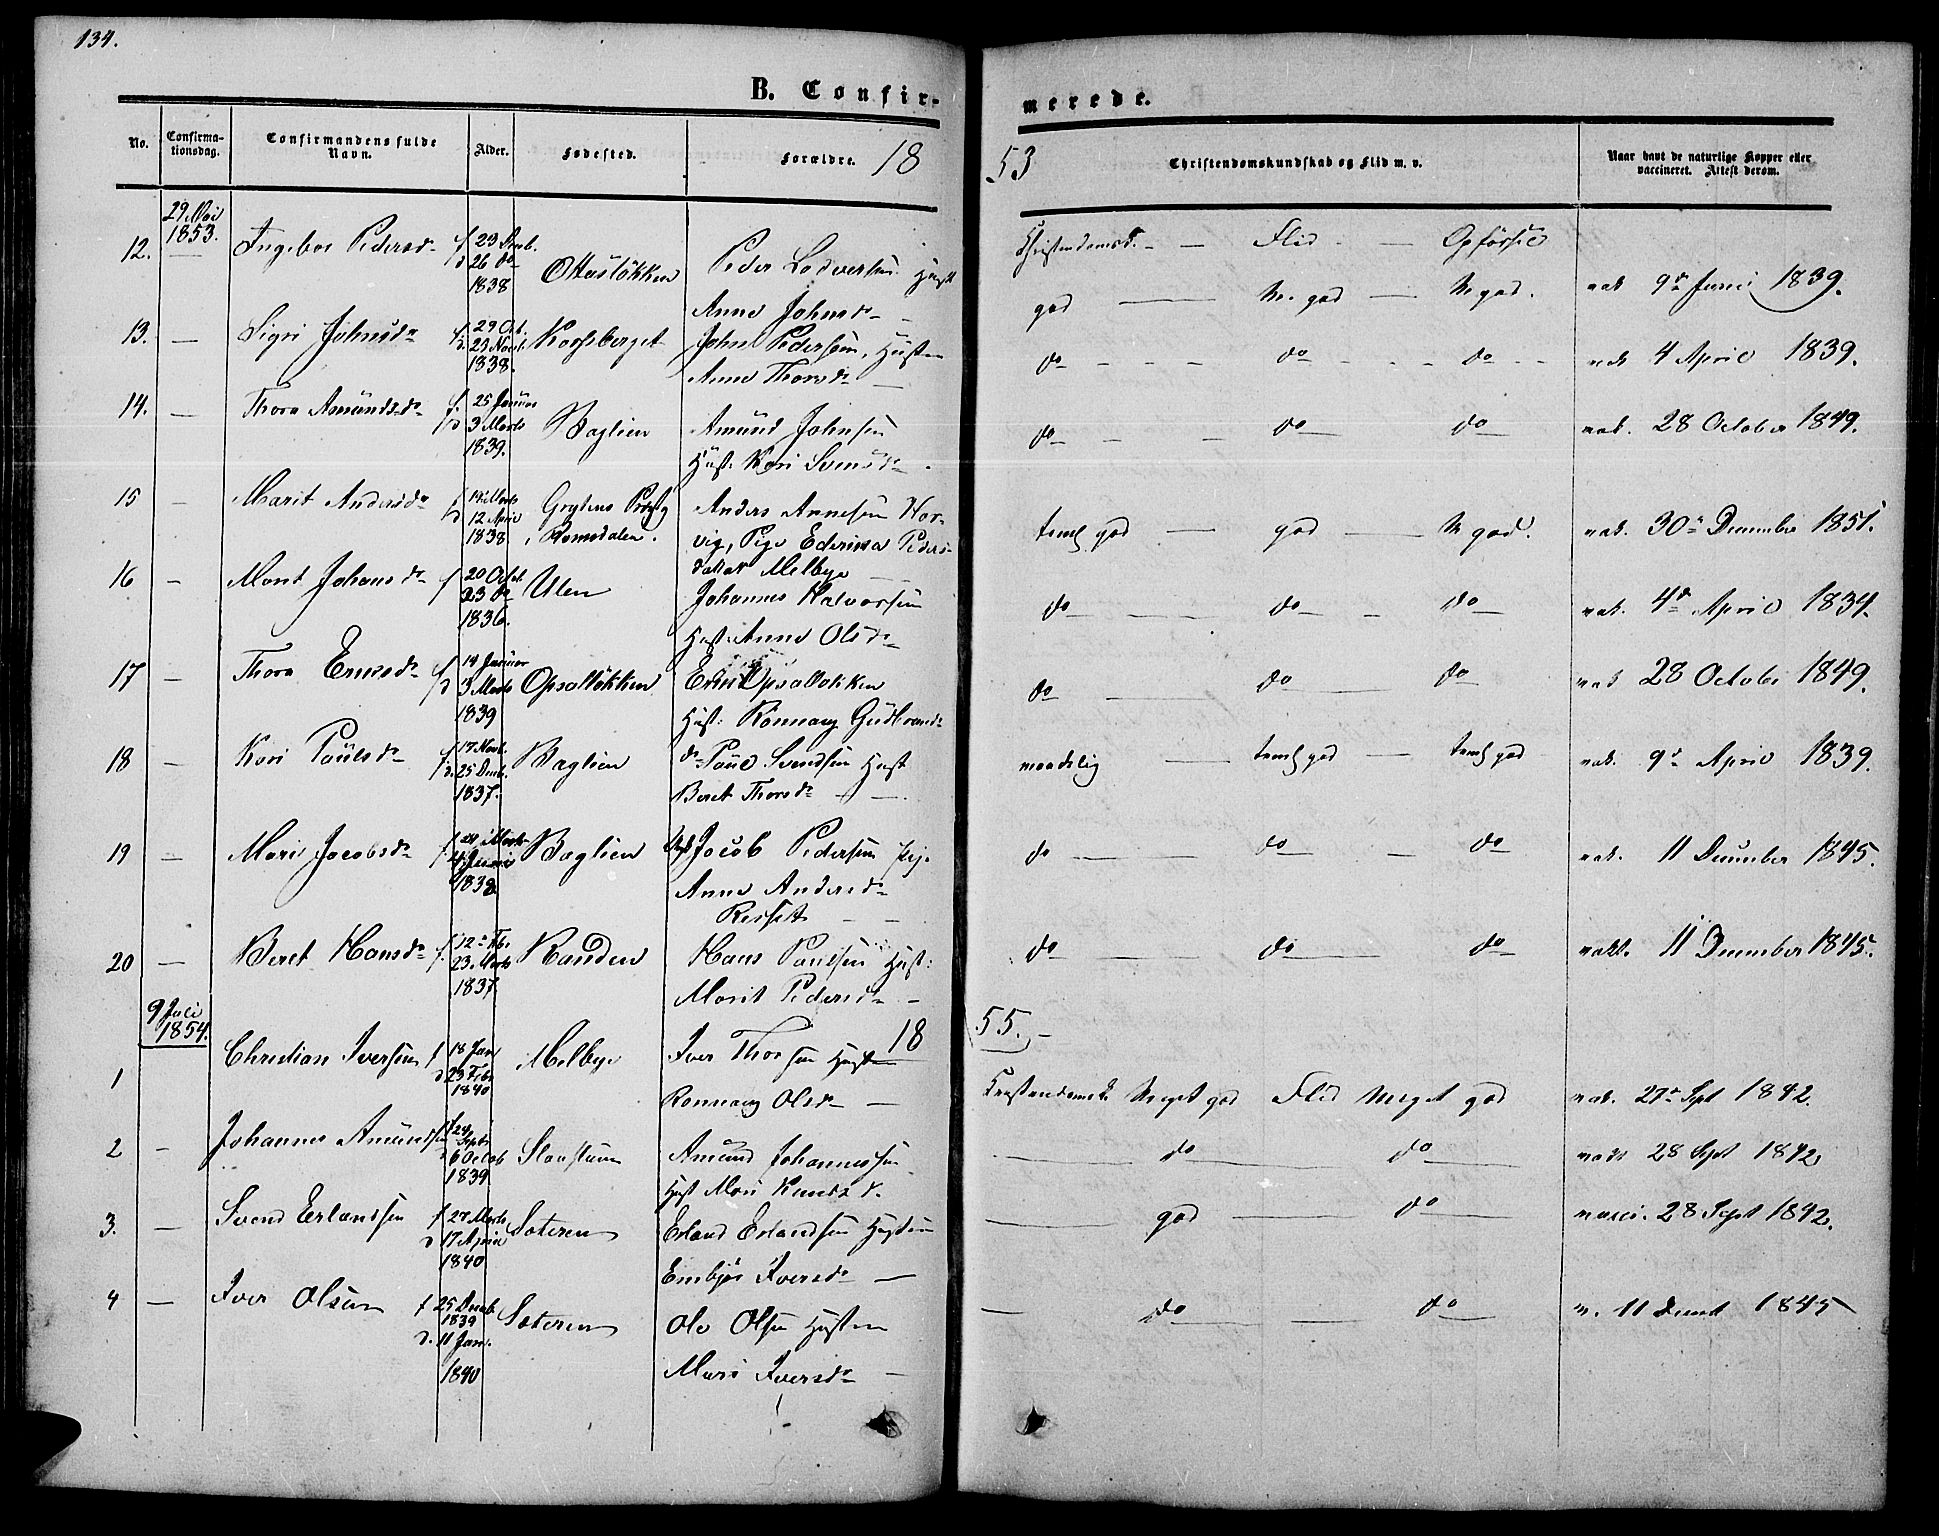 134.
B. Confirmerede.
No.
Confirma-
tionsdag.
Confirmandens fulde
Navn.
Alder.
Fødested.
Forældre.
1853
Christendomskundskab og Flid m. v.
Naar havt de naturlige Kopper eller
vaccineret. Attest derom.
29 Mai
1853.
12. — Ingebor Pedersd. f 23 Decb. d 26 do 1838 Ottasløkken Peder Lodversen Hust
Anne Johnsd. —
Christendomsk. — Flid — Opførsel
god — M. god — M god. vak. 9de Juni 1839.
13. — Sigri Johnsd. f. 29 Oct. d. 23 Novb. 1838. John Pedersen, Hustru
Anne Thorsd. —
do — do — do — vak 4 April 1839.
14. — Thora Amundsd. f. 25 Januar d 3 Marts 1839. Baglien Amund Johnsen
Hust: Kari Svensd. —
do — do — do vak. 28 October 1849.
15 — Marit Andersd. f 19 Marts d 12 April 1838 Grytens Præstg
i Romsdalen. Anders Annesen Hor-
vig, Pige Ederikka Peders-
datter Melbye
temlg god — god — M god. vak. 30te December 1851.
16 — Marit Johansd. f 20 Octob d 23 do 1836. Ulen Johannes Halvorsen
Hust: Anne Olsd.
do — do — do — vak. 4de April 1837.
17 — Thora Ericsd. f 19 Januar d 3 Marts 1839 Opsalløkken Eric Opsalløkken
Hust: Rønnaug Gudbrands
do — do — do vak 28 October 1849.
18 — Kari Poulsd. f. 17 Novb. d. 25 Decb. 1837. Baglien d. Poul Svendsen Hust
Beret Thorsd. —
maadelig — temlg god — temlg god vak. 9de April 1839.
19 — Mari Jacobsd. 1838 Baglien Jacob Pedersen Pige
Anne Andersd.
do — do — do vak. 11 December 1845.
20 — Beret Hansd. f. 12te Fb. 23 Marts 1837. Randen Hans Poulsen Hust:
Marit Pedersd. —
do do do vakt. 11 December 1845.
9 Juli
1854.
1855. —
1 Christian Iversen f 18 Jan d 23 Feb 1840 Melbye Iver Thorsen Hust
Rønnaug Olsd. —
Kristendomsk. Meget god Flid Meget god vak. 27de Sept 1842.
2 — Johannes Amundsen f 24 Septb d 6 Octob 1839 Amund Johannessen
Hust Mari Knuts d.
do — do — 28 Sept 1842
3. — Svend Erlandsen f 27 Marts d 17 April 1840 Sæteren Erland Erlandsen Hustru
Embjør Iversd. —
god — do — vacci. 28 Sept 1842.
4 — Iver Olsen f 25 Decb. 1839 d. 11 Jan. 1840 Sæteren Ole Olsen Hustru
Mari Iversd. —
— do — do — v. 11 Decmb 1845